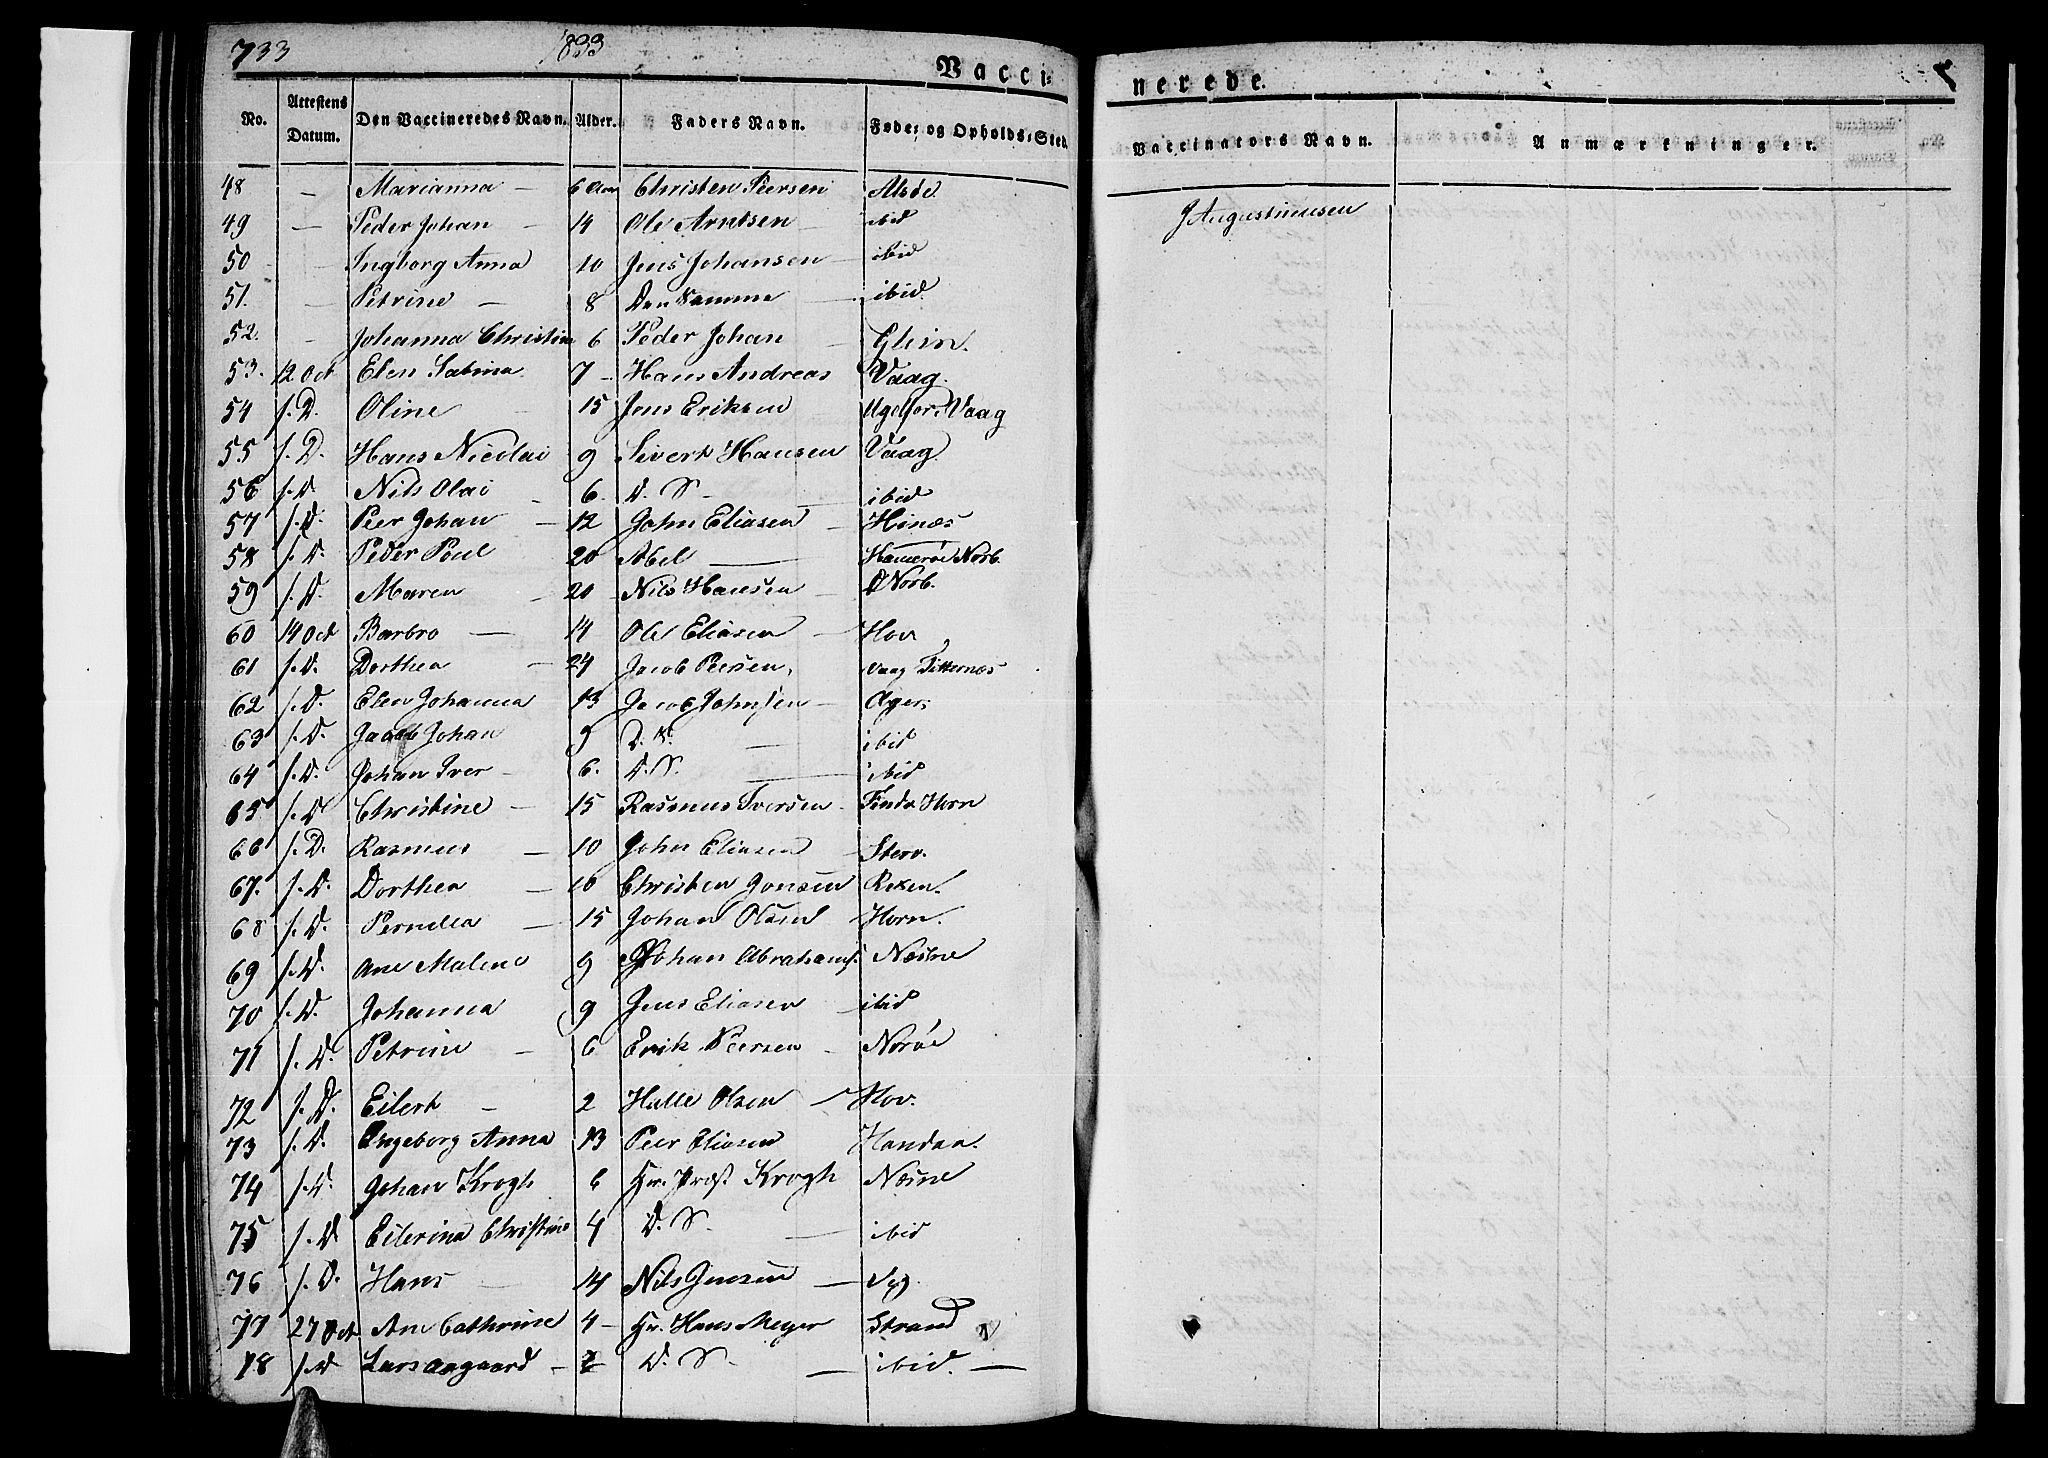 733 1833
Vacci-
No. Attestens Datum. Den Vaccineredes Navn. Alder. Faders Navn. Føde- og Opholds-Sted.
48 — Marianna — 6 Aar Christen Peersen Alsde
49 — Peder Johan — 14 Ole Arntsen ibid
50 — Ingborg Anna 10 Jens Johansen — ibid
51. — Petrine — 8 Den Samme — ibid.
52. — Johanna Christin 6 Peder Johan — Glein.
53. 12 Oct Elen Sabina 7 — Hans Andreas Vaag.
54 s. D. Oline 15 Jens Eriksen Vaag
55 s. D. Hans Nicolai 9 Sivert Hansen Vaag
56 s. D Nils Olai — 6. D. S — ibid
57 s. D. Peer Johan — 12 John Eliasen — Hønæs
58 s. D Peder Poul 20 Abel — Hamerøe Norb.
59 s. D. Maren — 20 Nils Hansen — D Norb.
60 14 Oct Barbro — 14 Ole Eliasen — Hov
61 s. D. Dorthea — 24 Jacob Peersen, Vaag
62 s. D. Elen Johanna 13 Jacob Johnsen — Ager,
63 s. D. Jacob Johan 9 D. S. — ibid
64 s. D. Johan Iver — 6. D. S. — ibid
65 s. D Christine — 15 Rasmus Iversen — Horn
66 s. D. Rasmus — 10 John Eliasen —
67. s. D. Dorthea — 10 Christen Jonsen
68 s. D. Pernilla — 15 Johan Olsen Horn.
69 s. D. Ane Malene 9 Johan Abrahams. Næsne
70 s. D. Johanna 9 Jens Eliasen — ibid
71 s. D. Petrine — 6 Erik Peersen — Norøe
72 s. D. Eilert — 2 Halle Olsen — Hov.
73 s. D. Engeborg Anna 13 Peer Eliasen Handaa.
74 s. D. Johan Krogh 6 Hr. Præst Krogh Næsne
75 s. D Eilerina Christine 4 D. S. — ibid
76 s. D. Hans — 14 Nils Jensen —
77 27 Oct. Ane Cathrine 4 — Hr. Hans Meyer Strand
78 s. D Lars Aagaard — 2 D. S — ibid. —
nerede.
Vaccinators Navn. Anmærkninger.
J Augustinusen